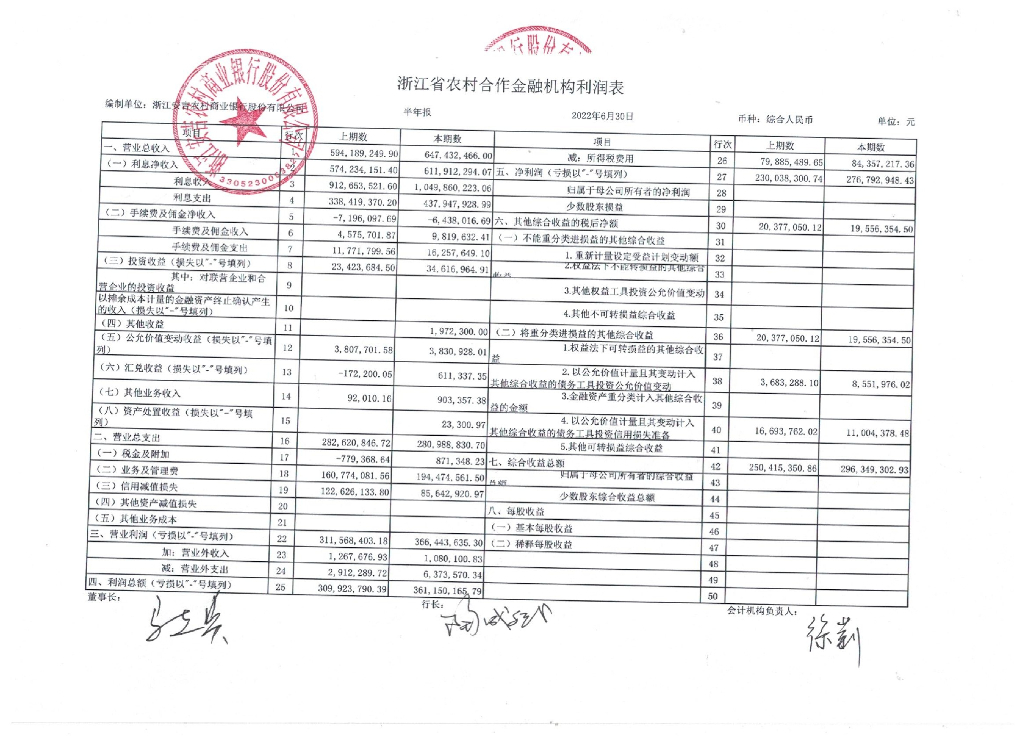 浙江省农村合作金融机构利润表
编制单位：浙江安吉农村商业银行股份有限公司 半年报 2022年6月30日 币种：综合人民币 单位：元
项目 行次 上期数 本期数 项目 行次 上期数 本期数
一、营业总收入 594,189,249.90 647,432,466.00 减：所得税费用 26 79,885,489.65 84,357,217.36
（一）利息净收入 574,234,151.40 611,912,294.07 五、净利润（亏损以"-"号填列） 27 230,038,300.74 276,792,948.43
利息收入 3 912,653,521.60 1,049,860,223.06 归属于母公司所有者的净利润 28
利息支出 4 338,419,370.20 437,947,928.99 少数股东损益 29
（二）手续费及佣金净收入 5 -7,196,097.69 -6,438,016.69 六、其他综合收益的税后净额 30 20,377,050.12 19,556,354.50
手续费及佣金收入 6 4,575,701.87 9,819,632.41 （一）不能重分类进损益的其他综合收益 31
手续费及佣金支出 7 11,771,799.56 16,257,649.10 1.重新计量设定受益计划变动额 32
（三）投资收益（损失以"-"号填列） 8 23,423,684.50 34,616,964.91 2.权益法下不能转损益的其他综合收益 33
其中：对联营企业和合营企业的投资收益 9 3.其他权益工具投资公允价值变动 34
以摊余成本计量的金融资产终止确认产生的收入（损失以"-"号填列） 10 4.其他不可转损益综合收益 35
（四）其他收益 11 1,972,300.00 （二）将重分类进损益的其他综合收益 36 20,377,050.12 19,556,354.50
（五）公允价值变动收益（损失以"-"号填列） 12 3,807,701.58 3,830,928.01 1.权益法下可转损益的其他综合收益 37
（六）汇兑收益（损失以"-"号填列） 13 -172,200.05 611,337.35 2.以公允价值计量且其变动计入其他综合收益的债务工具投资公允价值变动 38 3,683,288.10 8,551,976.02
（七）其他业务收入 14 92,010.16 903,357.38 3.金融资产重分类计入其他综合收益的金额 39
（八）资产处置收益（损失以"-"号填列） 15 23,300.97 4.以公允价值计量且其变动计入其他综合收益的债务工具投资信用损失准备 40 16,693,762.02 11,004,378.48
二、营业总支出 16 282,620,846.72 280,988,830.70 5.其他可转损益综合收益 41
（一）税金及附加 17 -779,368.64 871,348.23 七、综合收益总额 42 250,415,350.86 296,349,302.93
（二）业务及管理费 18 160,774,081.56 194,474,561.50 归属于母公司所有者的综合收益总额 43
（三）信用减值损失 19 122,626,133.80 85,642,920.97 少数股东综合收益总额 44
（四）其他资产减值损失 20 八、每股收益 45
（五）其他业务成本 21 （一）基本每股收益 46
三、营业利润（亏损以"-"号填列） 22 311,568,403.18 366,443,635.30 （二）稀释每股收益 47
加：营业外收入 23 1,267,676.93 1,080,100.83 48
减：营业外支出 24 2,912,289.72 6,373,570.34 49
四、利润总额（亏损以"-"号填列） 25 309,923,790.39 361,150,165.79 50
董事长： 行长： 会计机构负责人：